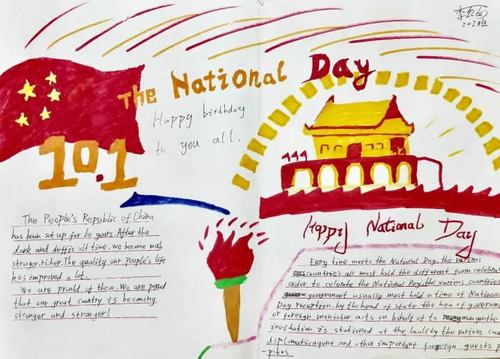 The National Day
Happy birthday
to you all.
10.1
The People's Republic of China
has been set up for years. After the
dark and time. We became
stronger, richer. The quality our people's life
has improved a lot.
We are proud of them. We are proud
that our great country is becoming
stronger and stronger!
Happy National Day
Every time meets the National Day, the various
countries all must hold the different form celebrate
order to celebrate the National Day, the various countries
government usually must hold a time of National
Day reception, by the head of state the of government
or foreign minister acts on behalf of to
invitation is stationed at the locality the various
and other important foreign guests